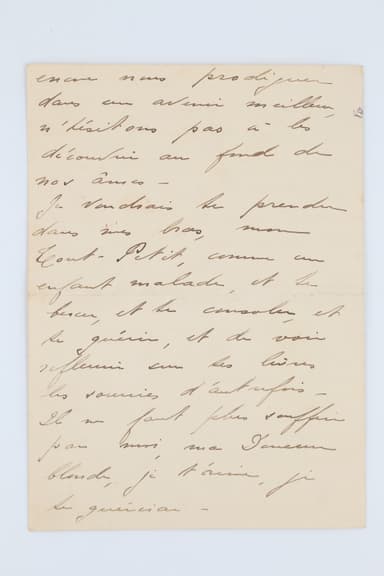 encore nous prodiguer
dans un avenir meilleur,
n'hésitons pas à les
découvrir au fond de
nos âmes –
Je voudrais te prendre
dans mes bras, mon
Tout-Petit, comme un
enfant malade, et te
bercer, et te consoler, et
te guérir, et de voir
refleurir sur tes lèvres
les sourires d'autrefois –
Il ne faut plus souffrir
par moi, ma Douceur
blonde, je t'aime, je
te guérirai –